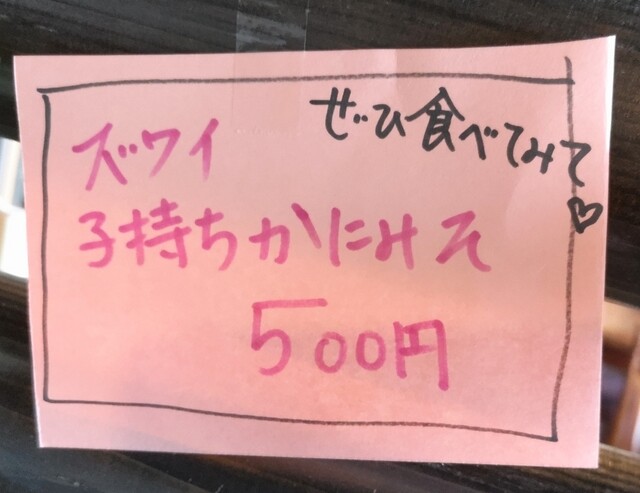 ぜひ食べてみて♡
ズワイ
子持ちかにみそ
500円